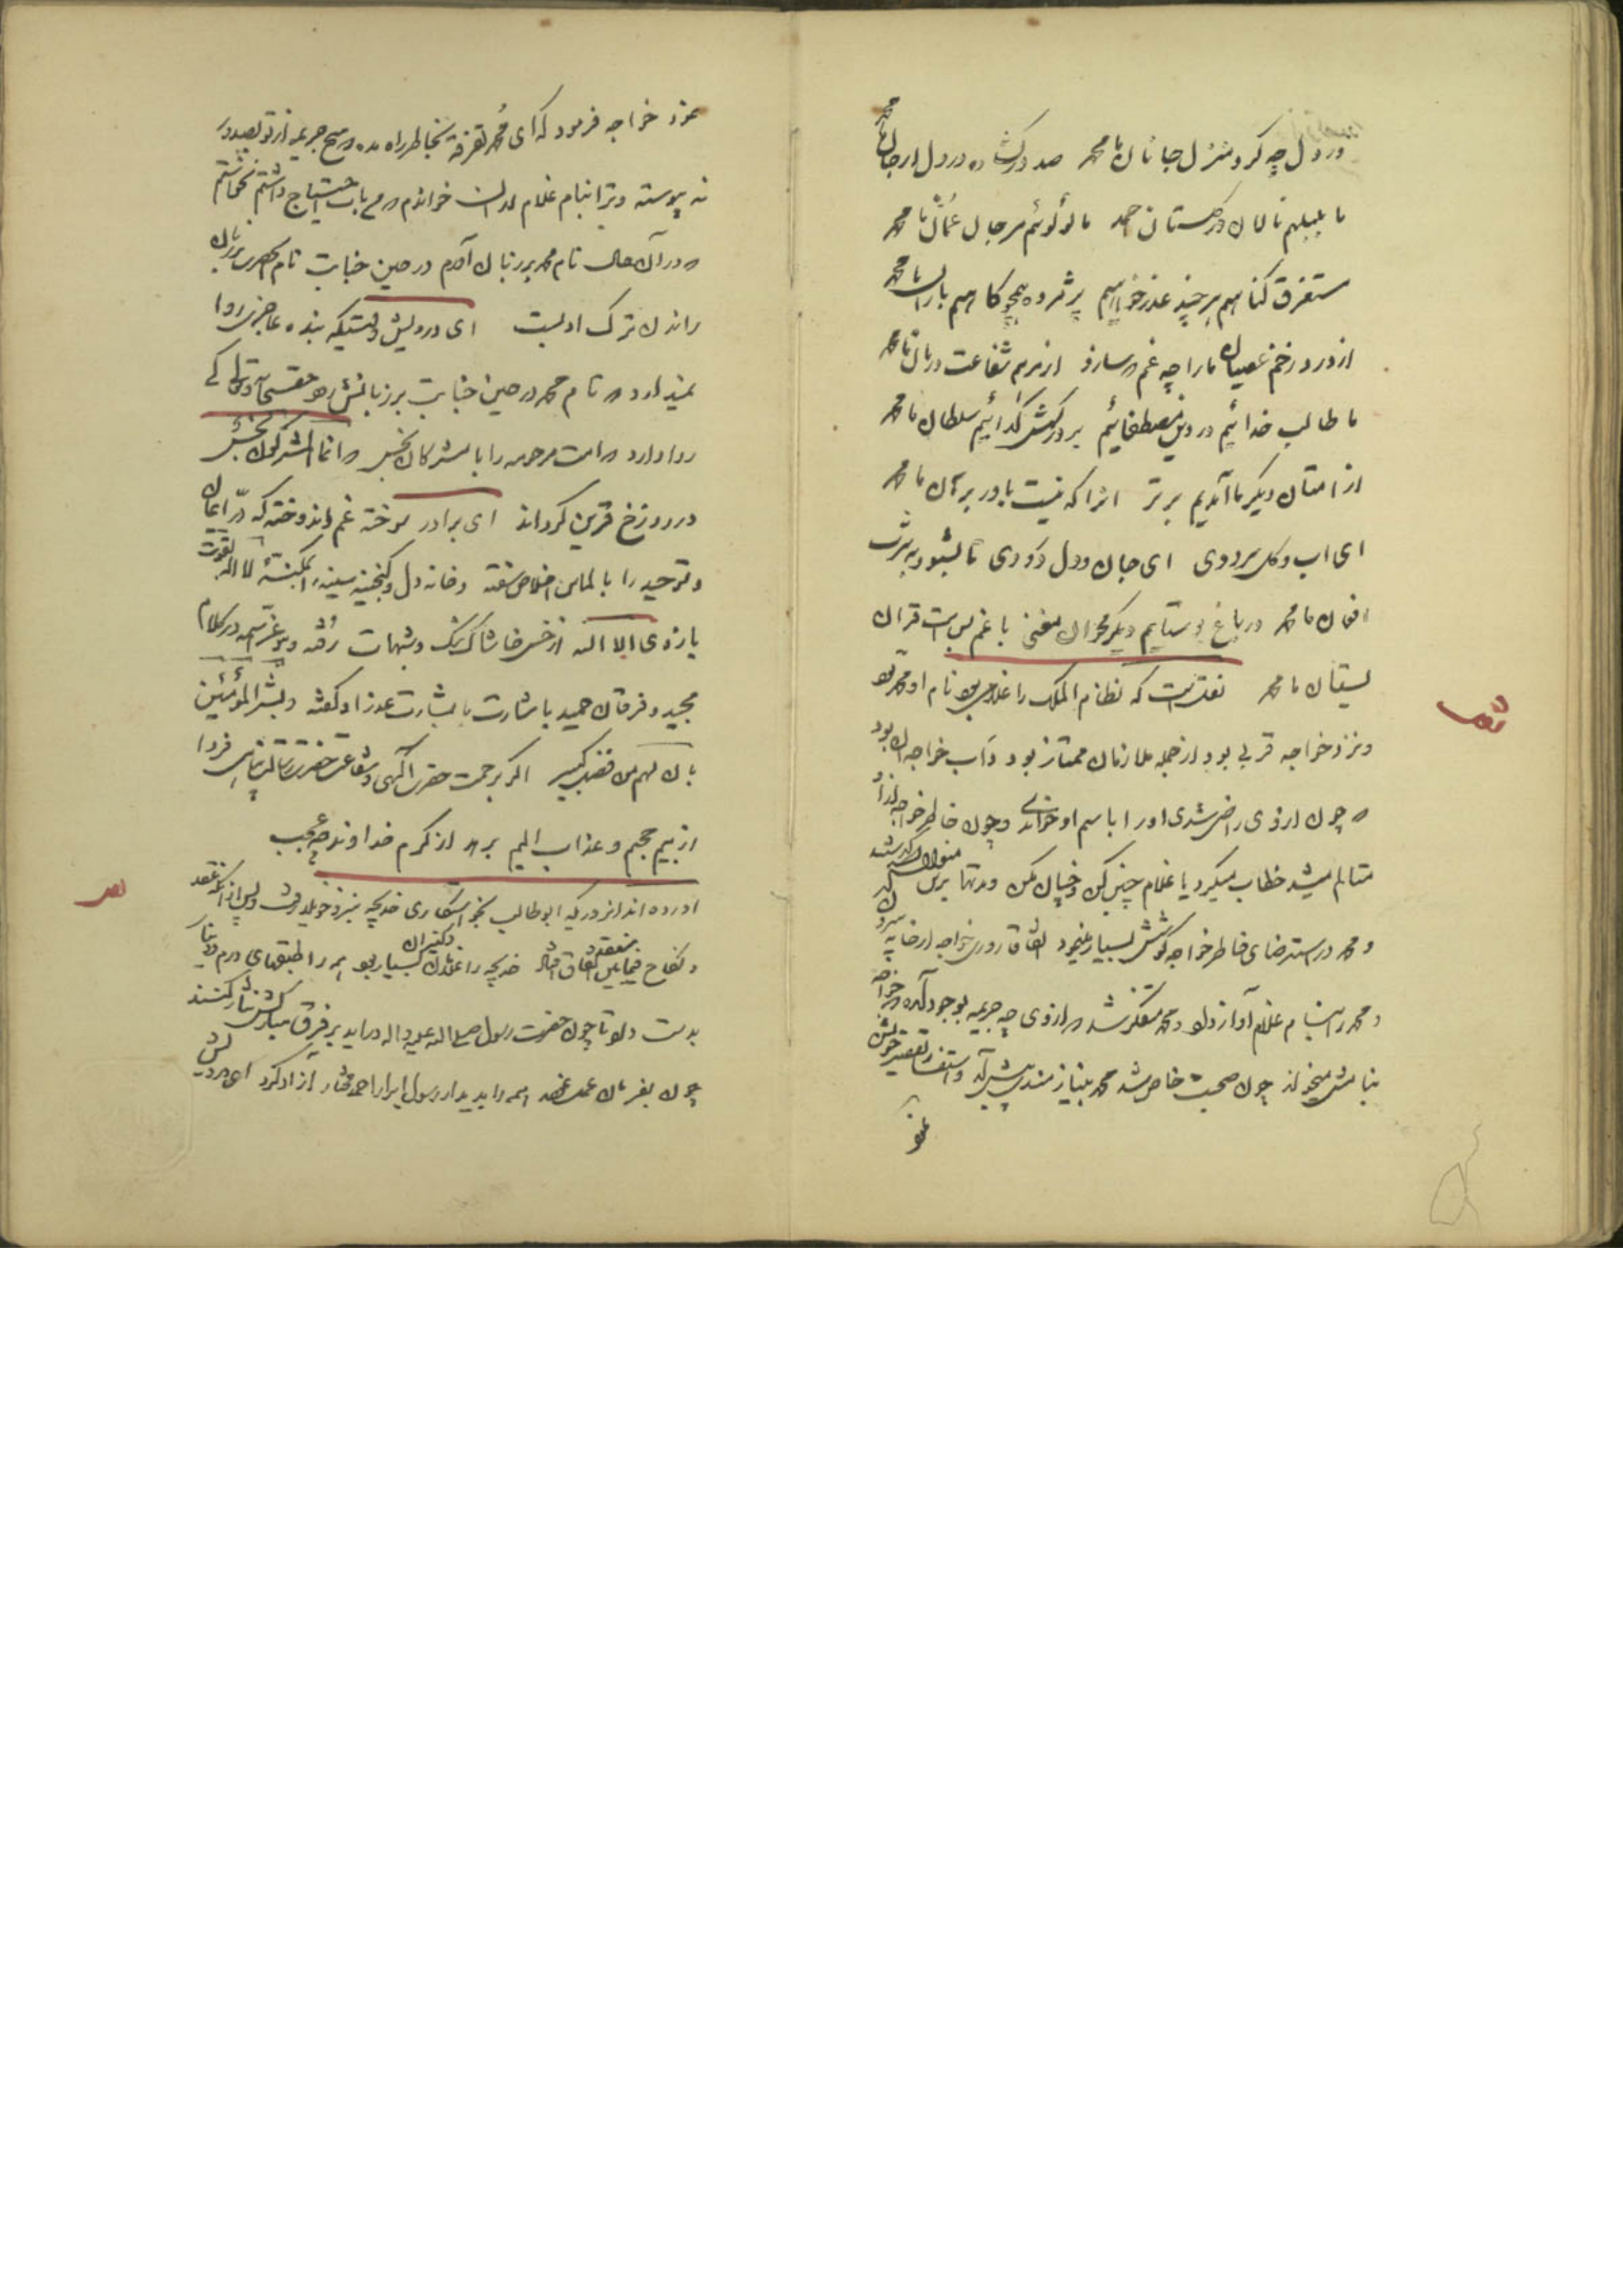 در دل چه کرد منزل جانان ما محمد صد در گشاده در دل از جان ما محمد
ما بلبلیم نالان در گلستان احمد ما لولوئیم مرجان عمان ما محمد
مستغرق گناهیم هر چند عذر خواهیم پژمرده چون گیاهیم باران ما محمد
از درد زخم عصیان ما را چه غم چو سازد از مرهم شفاعت درمان ما محمد
ما طالب خدائیم در دین مصطفائیم بر درگهش گدائیم سلطان ما محمد
از امتان دیگر ما آمدیم برتر انرا که نیست باور برهان ما محمد
ای اب و گل سرودی ای جان و دل درودی تا بشنود به یثرب
افغان ما محمد در باغ و بستانم دیگر مخوان مغنی باغم بس است قران
بستان ما محمد نقلست که نظام الملک را غلامی بود نام او محمد بود
نقل
و نزد خواجه قربی بود از جمله ملازمان ممتاز بود و داب خواجه ان بود
که چون از وی راضی شدی او را باسم او خواندی و چون خاطر خواجه از او
متالم میشد خطاب میکرد یا غلام چنین کن و چنان مکن و مدتها برین منوال گذشت
و محمد در استرضای خاطر خواجه کوشش بسیار مینمود اتفاقا روزی خواجه از خانه
و محمد را بنام غلام آواز داد و محمد متفکر شد که از وی چه جریمه بوجود آمده که خواجه
بنامش نمیخواند چون صحبت خاص شد محمد بنیازمندی پیش آمد و استغفار تقصیر خویش
نمود
نمود خواجه فرمود که ای محمد تفرقه بخاطر راه مده که هیچ جریمه از تو بصدور
نه پیوسته و ترا بنام غلام خواندم که من احتیاج داشتم نخواستم
که در آن حال نام محمد بر زبان آرم در حین جنابت نام آنحضرت بر زبان
راندن ترک ادبست ای درویش وقتیکه بنده عاجزی روا
نمیدارد که نام محمد در حین جنابت بر زبانش رود حقسبحانه وتعالی کی
روا دارد که امت مرحومه را با مشرکان نجس که انما المشرکون نجس
در دوزخ قرین گرداند ای برادر سوخته غم اندوخته که در ایمان
و توحید را بالماس اخلاص سفته و خانه دل و گنجینه سینه را بمکنسه لا اله بقوت
بازوی الا الله از خس و خاشاک شک و شبهات رفته و عز اسمه در کلام
مجید و فرقان حمید با شارت با بشارت عذر او گفته و بشر المؤمنین
بان لهم من فضل کبیر اگر برحمت حضرت الهی و شفاعت حضرت رسالت پناهی فردا
از بیم جحیم و عذاب الیم برهد از کرم خداوند چه عجب
نقل
آورده اند که در روزیکه ابوطالب بخواستکاری خدیجه نزد خویلد رفت و پس از آنکه عقد
و نکاح فیمابین منعقد اتفاق افتاد خدیجه را غلامان و کنیزان بسیار بود همه را طبقهای درم و دینار
بدست داد تا چون حضرت رسول صلی الله علیه و اله در آید بر فرق مبارکش نثار کنند
چون بفرمان عمل نمودند همه را بدیدار رسول ابرار احمد مختار آزاد کرد ای درویش